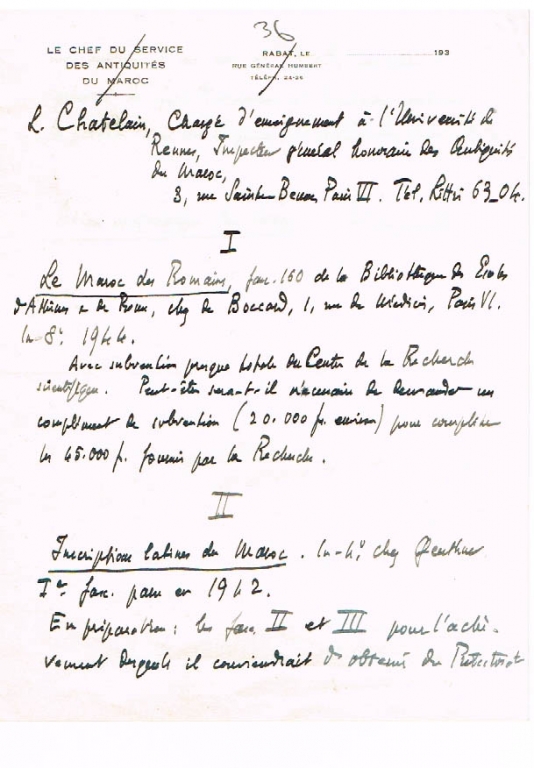 36
LE CHEF DU SERVICE
DES ANTIQUITÉS
DU MAROC
RABAT, LE 193
RUE GÉNÉRAL HUMBERT
TÉLÉPH. 24-26
L. Chatelain, Chargé d'enseignement à l'Université de
Rennes, Inspecteur général honoraire des Antiquités
du Maroc,
8, rue Sainte-Beuve, Paris VI. Tél. Littré 63_04.
I
Le Maroc des Romains, fasc. 160 de la Bibliothèque des Ecoles
d'Athènes et de Rome, chez de Boccard, 1, rue de Médicis, Paris VI.
In-8° 1944.
Avec subvention presque totale du Centre de la Recherche
scientifique. Peut-être serait-il nécessaire de demander un
complément de subvention (20.000 fr. environ) pour compléter
les 45.000 fr. fournis par la Recherche.
II
Inscriptions latines du Maroc. In-4°, chez Geuthner
Ier fasc. paru en 1942.
En préparation : les fasc. II et III pour l'achè-
vement desquels il conviendrait d'obtenir du Protectorat